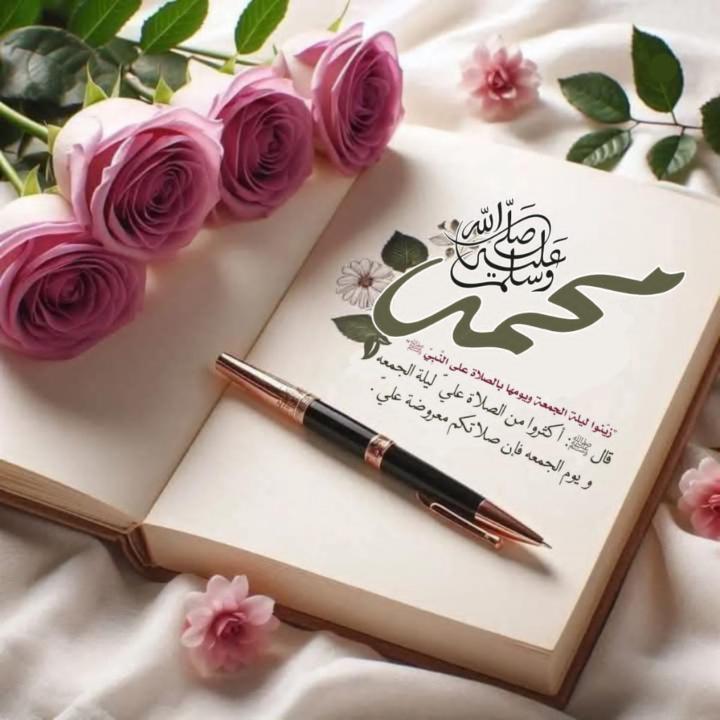 صلى الله
عليه
وسلم
محمد
"زينوا ليلة الجمعة ويومها بالصلاة على النبيّ ﷺ"
قال ﷺ: أكثروا من الصلاة عليّ ليلة الجمعه
و يوم الجمعه فإن صلاتكم معروضة عليّ .